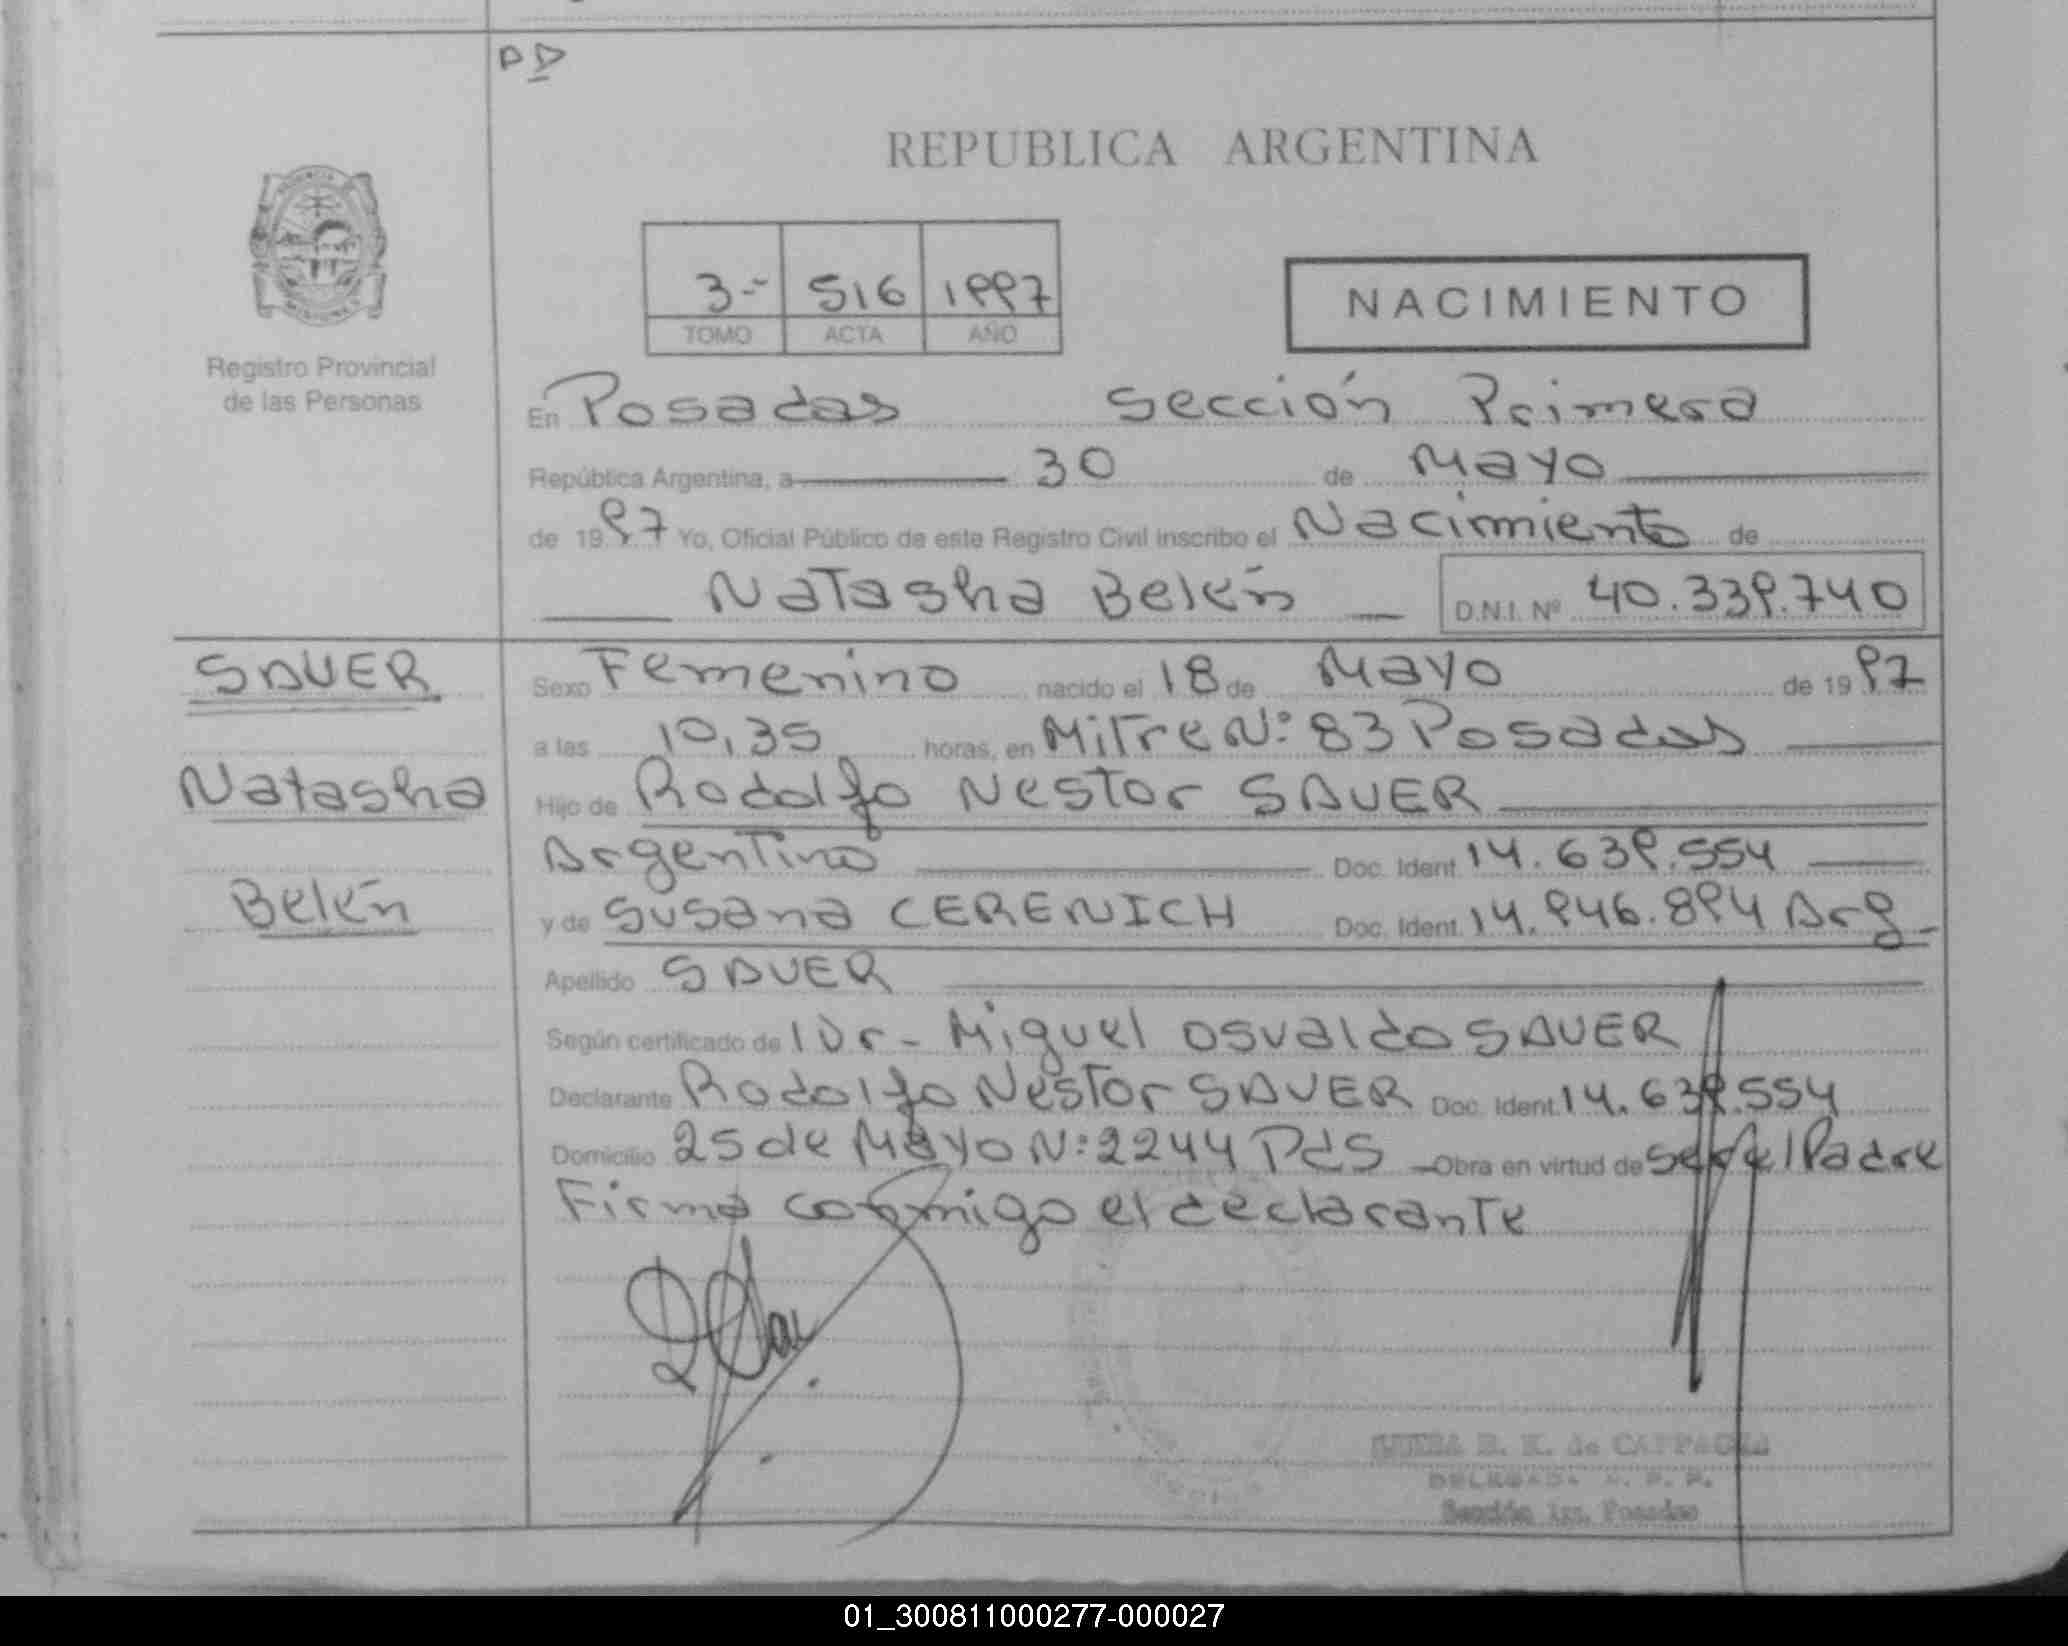 DD
REPUBLICA ARGENTINA
3.- 516 1997
TOMO ACTA AÑO
NACIMIENTO
Registro Provincial
de las Personas
En Posadas Sección Primera
República Argentina, a 30 de Mayo
de 1997 Yo, Oficial Público de este Registro Civil inscribo el Nacimiento de
Natasha Belén D.N.I. Nº 40.339.740
SAUER
Natasha
Belén
Sexo Femenino nacido el 18 de Mayo de 1997
a las 10,35 horas, en Mitre Nº 83 Posadas
Hijo de Rodolfo Nestor SAUER
Argentino Doc. Ident. 14.639.554
y de Susana CERENICH Doc. Ident. 14.946.894 Arg.
Apellido SAUER
Según certificado de Dr. Miguel Osvaldo SAUER
Declarante Rodolfo Nestor SAUER Doc. Ident. 14.639.554
Domicilio 25 de Mayo Nº 2244 Pds Obra en virtud de ser el Padre
Firma conmigo el declarante
Sección 1ra. Posadas
01_300811000277-000027